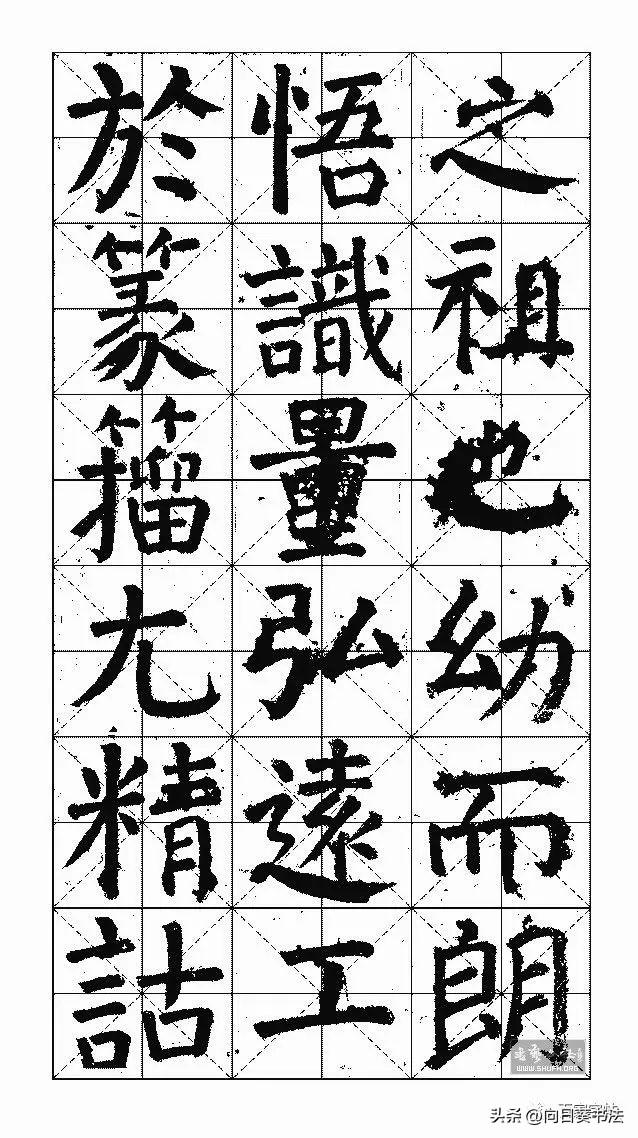 之祖也幼而朗
悟識量弘遠工
於篆籀尤精詁
WWW.SHUFH.COM
头条 @向日葵书法